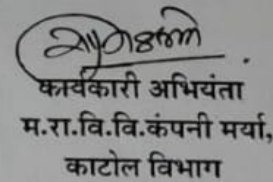 कार्यकारी अभियंता
म.रा.वि.वि.कंपनी मर्या,
काटोल विभाग